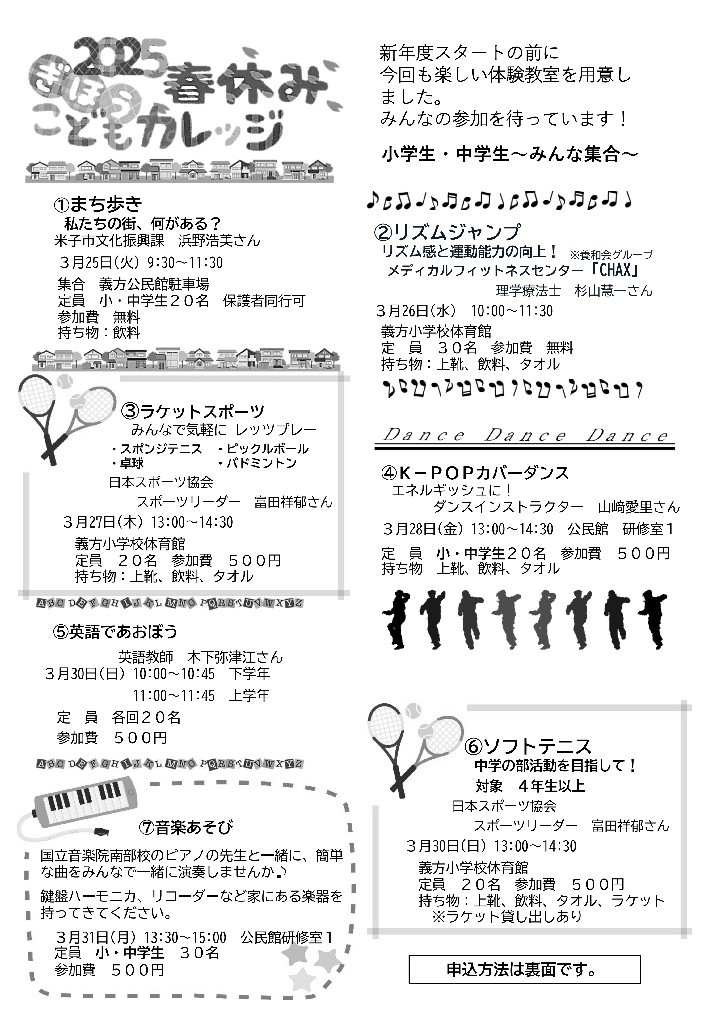 2025
ぎほう
春休み
こどもカレッジ
新年度スタートの前に
今回も楽しい体験教室を用意し
ました。
みんなの参加を待っています！
小学生・中学生～みんな集合～
①まち歩き
私たちの街、何がある？
米子市文化振興課　浜野浩美さん
３月25日(火) 9:30～11:30
集合　義方公民館駐車場
定員　小・中学生２０名　保護者同行可
参加費　無料
持ち物：飲料
②リズムジャンプ
リズム感と運動能力の向上！　※養和会グループ
メディカルフィットネスセンター「CHAX」
理学療法士　杉山慧一さん
３月26日(水)　10:00～11:30
義方小学校体育館
定　員　３０名　参加費　無料
持ち物：上靴、飲料、タオル
③ラケットスポーツ
みんなで気軽に レッツプレー
・スポンジテニス　・ピックルボール
・卓球　・バドミントン
日本スポーツ協会
スポーツリーダー　富田祥郁さん
３月27日(木) 13:00～14:30
義方小学校体育館
定員　２０名　参加費　５００円
持ち物：上靴、飲料、タオル
Dance Dance Dance
④Ｋ－ＰＯＰカバーダンス
エネルギッシュに！
ダンスインストラクター　山﨑愛里さん
３月28日(金) 13:00～14:30　公民館　研修室１
定　員　小・中学生２０名　参加費　５００円
持ち物　上靴、飲料、タオル
ABCDEFGHIJKLMNOPQRSTUVWXYZ
⑤英語であおぼう
英語教師　木下弥津江さん
３月30日(日) 10:00～10:45　下学年
11:00～11:45　上学年
定　員　各回２０名
参加費　５００円
ABCDEFGHIJKLMNOPQRSTUVWXYZ
⑥ソフトテニス
中学の部活動を目指して！
対象　４年生以上
日本スポーツ協会
スポーツリーダー　富田祥郁さん
３月30日(日) 13:00～14:30
義方小学校体育館
定員　２０名　参加費　５００円
持ち物：上靴、飲料、タオル、ラケット
※ラケット貸し出しあり
⑦音楽あそび
国立音楽院南部校のピアノの先生と一緒に、簡単
な曲をみんなで一緒に演奏しませんか♪
鍵盤ハーモニカ、リコーダーなど家にある楽器を
持ってきてください。
３月31日(月) 13:30～15:00　公民館研修室１
定員　小・中学生　３０名
参加費　５００円
申込方法は裏面です。